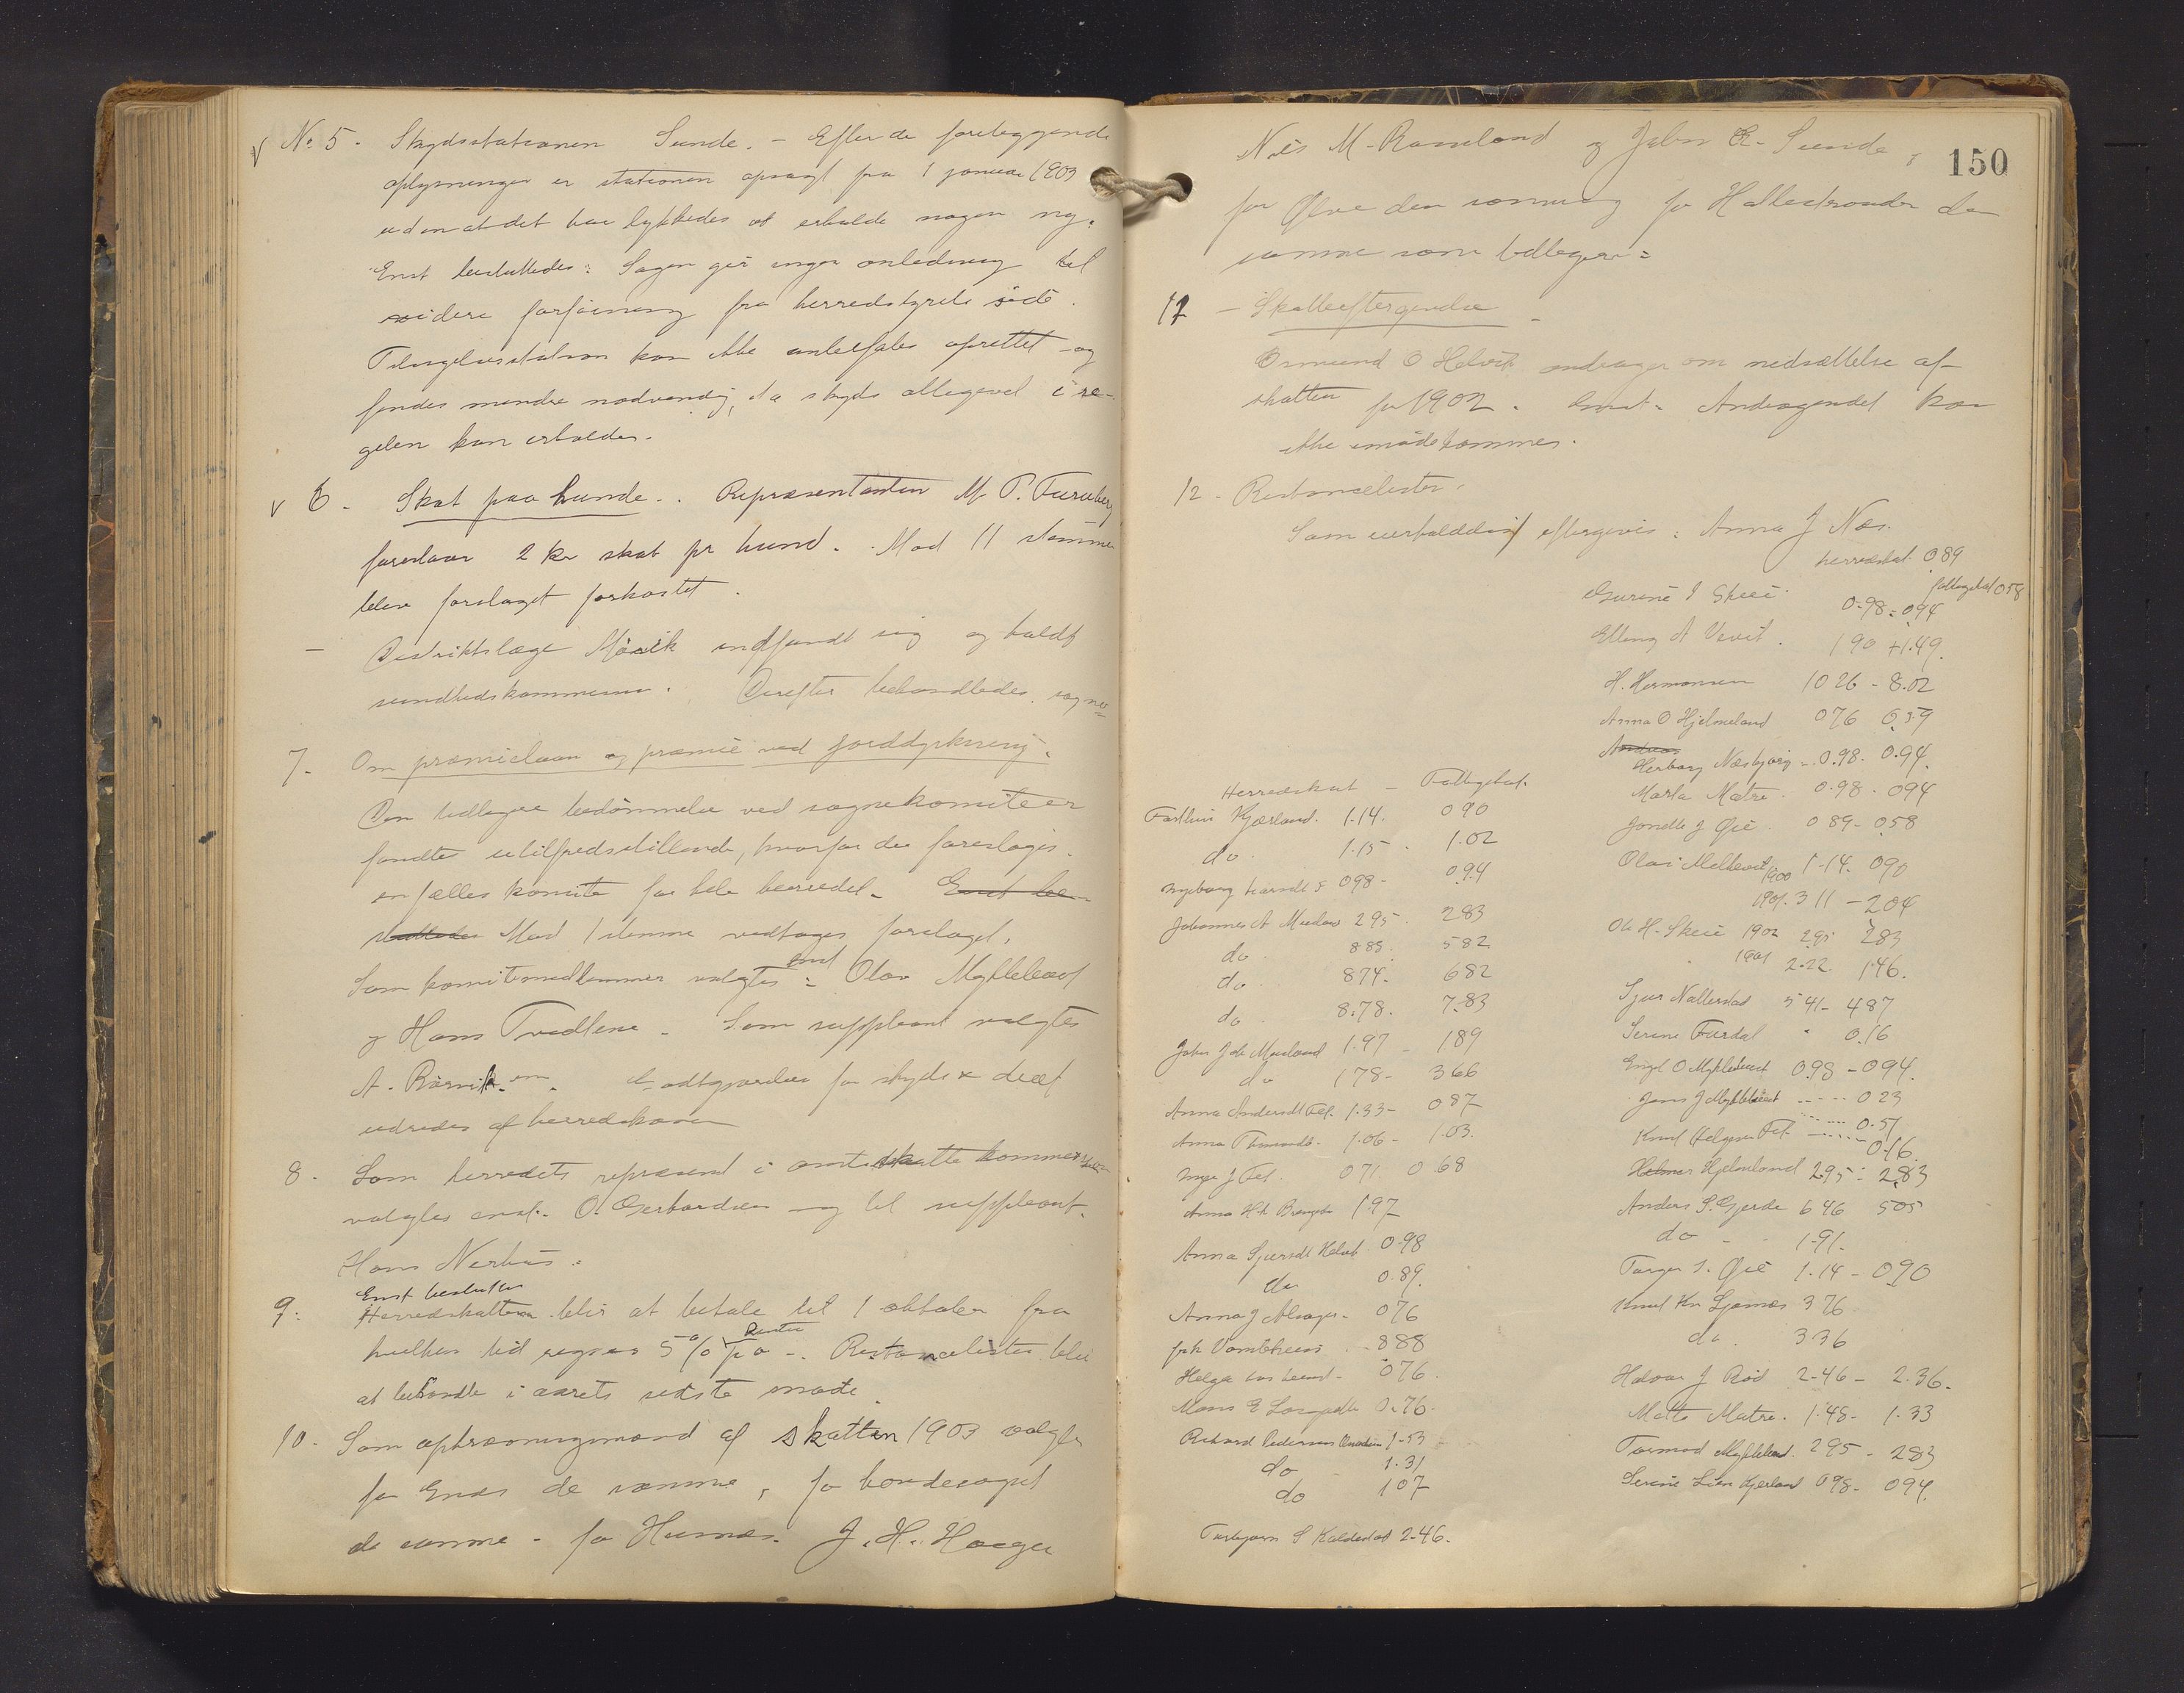 v No 5. Skydsstationen Sunde. - Efter de foreliggende
oplysninger er stationen opsagt fra 1 januar 1903
uden at det har lykkedes at erholde nogen ny.
Enst besluttedes: Sagen gir ingen anledning til
videre forføining fra herredstyrets side.
Tilsigelsesstation kan ikke anbefales oprettet og
findes mindre nødvendig, da skyds allegevel i re-
gelen kan erholdes.
v 6. Skat paa hunde. Repræsentanten M P. Furuberg
foreslaar 2 kr skat pr hund. Mod 11 stemmer
blev forslaget forkastet.
- Distriktslæge indfandt sig og holdt
sundhedskommission. Derefter behandledes sagne
7. Om præmielaan og præmie ved jorddyrkning.
Den tidligere bedømmelse ved sognekomiteer
fandtes utilfredsstillende, hvorfor der foreslages
en fælles komite for hele herredet. Enst be-
sluttedes Mod 1 stemme vedtages forslaget.
Som komitemedlemmer valgtes enst: Olav Myklebust
og Hans Tvedtene - Som suppleant valgtes
A. Rørvik. Udgifter for skyds & diæt
udredes af herredskassen
8. Som herredets repræsent i amtsskattekommissionen
valgtes enst. O. Gerhardsen og til suppleant.
Hans Nerhus.
Enst besluttes
9. Herredskatten blir at betale til 1 oktober fra
hvilken tid regnes 5 % Rente pa -. Restancelister blir
at behandle i aarets sidste møde.
10. Som opkrævningsmænd af skatten 1903 valgtes
for Enæs de samme, for bondesognet
de samme - for Husnes. J. H. Hauge
150
Nils M. Ramsland og John E. Sunde,
for Ølve den samme for Hatlestranden de
samme som tidligere.
11 - Skatteeftergivelse -
Osmund O Helvik andrager om nedsættelse af
skatten for 1902. Enst. Andragendet kan
ikke imødekommes.
12. Restancelister.
Som uerholdelig eftergives: Anna J Næs.
herredskat 089
fattigskat 058
Gurine I Skeie. 0.98 - 094
Elling A Vevit. 1 90 + 1.49.
H. Hermansen 10 26 - 8.02
Anna O Hjelmeland 076 0.59
Andreas
Herborg Næsbjørg - 0.98. 0.94.
Marta Matre. 0.98. 094
Jonette J Øie. 089 - 058
Olai Melkevit 1900 1-14. 090
1901. 3 11 - 204
Ole H. Skeie 1902 295 283
1901 2.22 1.46.
Sjur Nallestad 5 41 - 487
Serine Furdal " 0.16
Engl O Myklebust 098 - 094.
Jens J Myklebust ---- 023
Knut Helgesen Fet ---- 0.51
---- 0.16.
Helmer Hjelmeland 295 - 2.83
Anders S. Gjerde 6 46 505
do - - 1.91.
Torger S. Øie 1.14 - 090
Knut Kn Sjonæs 376
do. 336
Halvor J Rød 2.46 - 2.36.
Matte Matre. 1.48 - 1.33
Tormod Myklebust. 295 - 283
Serine Lien Kjerland 098 - 094.
Herredskat - Fattigskat.
Torthin Kjærland. 1.14. 090
do. 1.15. 1.02
Ingeborg Larsdt S 098 - 094
Johannes A Musland 295. 283
do. 885. 582
do. 874. 682
do. 8.78. 7.83
John Joh Musland 1.97 - 189
do 178 - 366
Anna Andersdt Fet. 1.33 - 087
Anna Thomasdt. 1.06 - 1.03.
Inga J Fet. 071. 068
Anna H. 197
Anna Sjursdt Helvik 0.98
do 0.89.
Anna J 076
888
Helga 076.
Mons E 0.76.
Rikard Pedersen 1-53
do - 1.31
do 107
Torbjørn S Kaldestad 2.46.